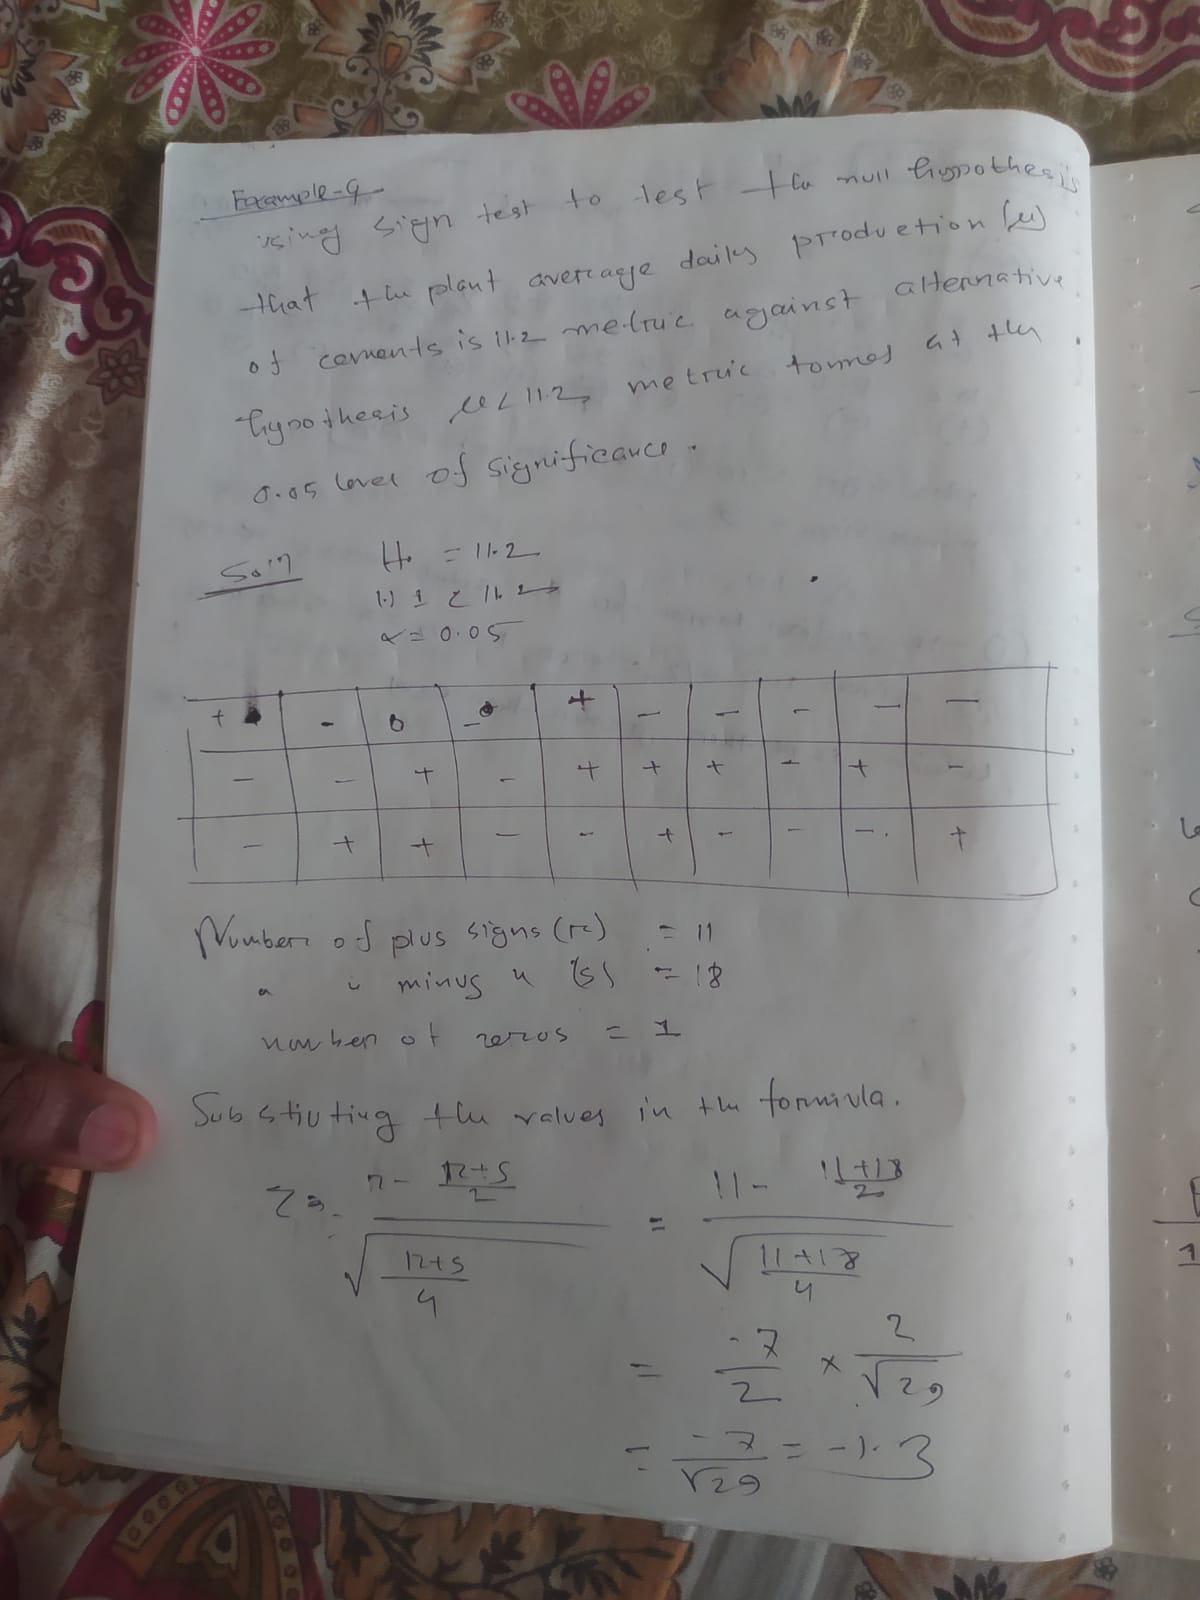 Example-9
using sign test to test the null hypothesis
that the plant average daily production (μ)
of cements is 11.2 metric against alternative
hypothesis μ < 11.2 metric tonnes at the
0.05 level of significance.
Soln H₀ = 11.2
H1 < 11.2
α = 0.05
+ - 0 - + - - - - -
- - + - + + + - + -
- + + - - + - - - +
Number of plus signs (r) = 11
" " minus " (s) = 18
number of zeros = 1
Substiuting the values in the formula.
Z = (r - (r+s)/2) / √((r+s)/4) = (11 - (11+18)/2) / √((11+18)/4)
= -7/2 × 2/√29
= -7/√29 = -1.3